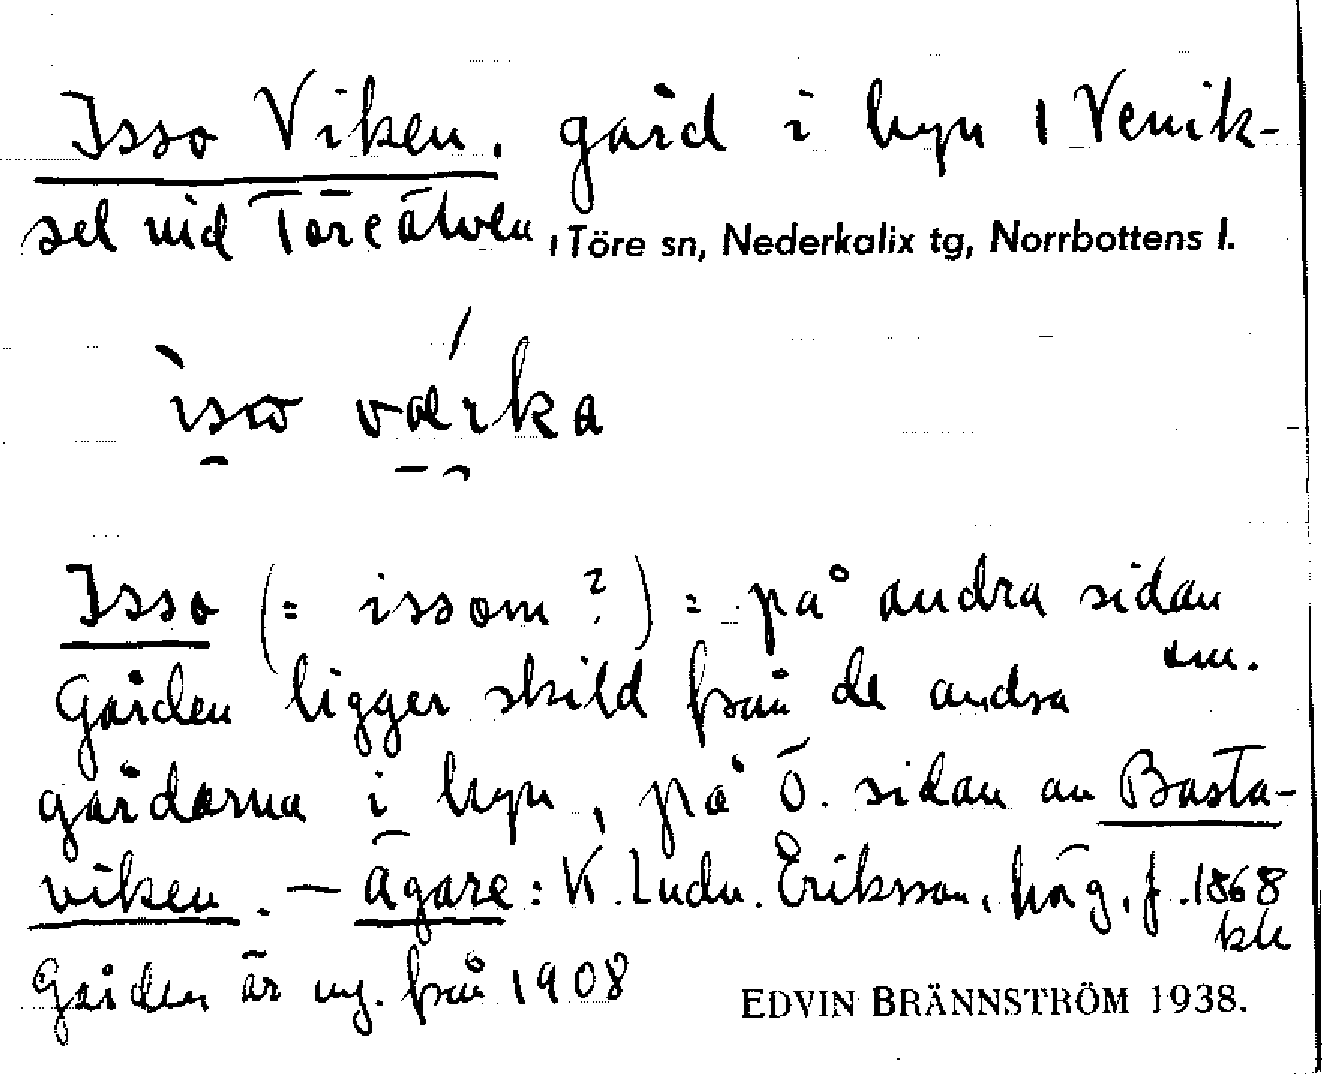 Isso Viken, gård i byn 1 Venik-
sel vid Töreälven, Töre sn, Nederkalix tg, Norrbottens l.
ìsω væ̀rka
Isso (= issom ?) = på andra sidan
om.
Gården ligger skild från de andra
gårdarna i byn, på ö. sidan av Basta-
viken. — Ägare: K. Ludv. Eriksson, häg, f. 1868
Gården är ny. från 1908
EDVIN BRÄNNSTRÖM 1938.